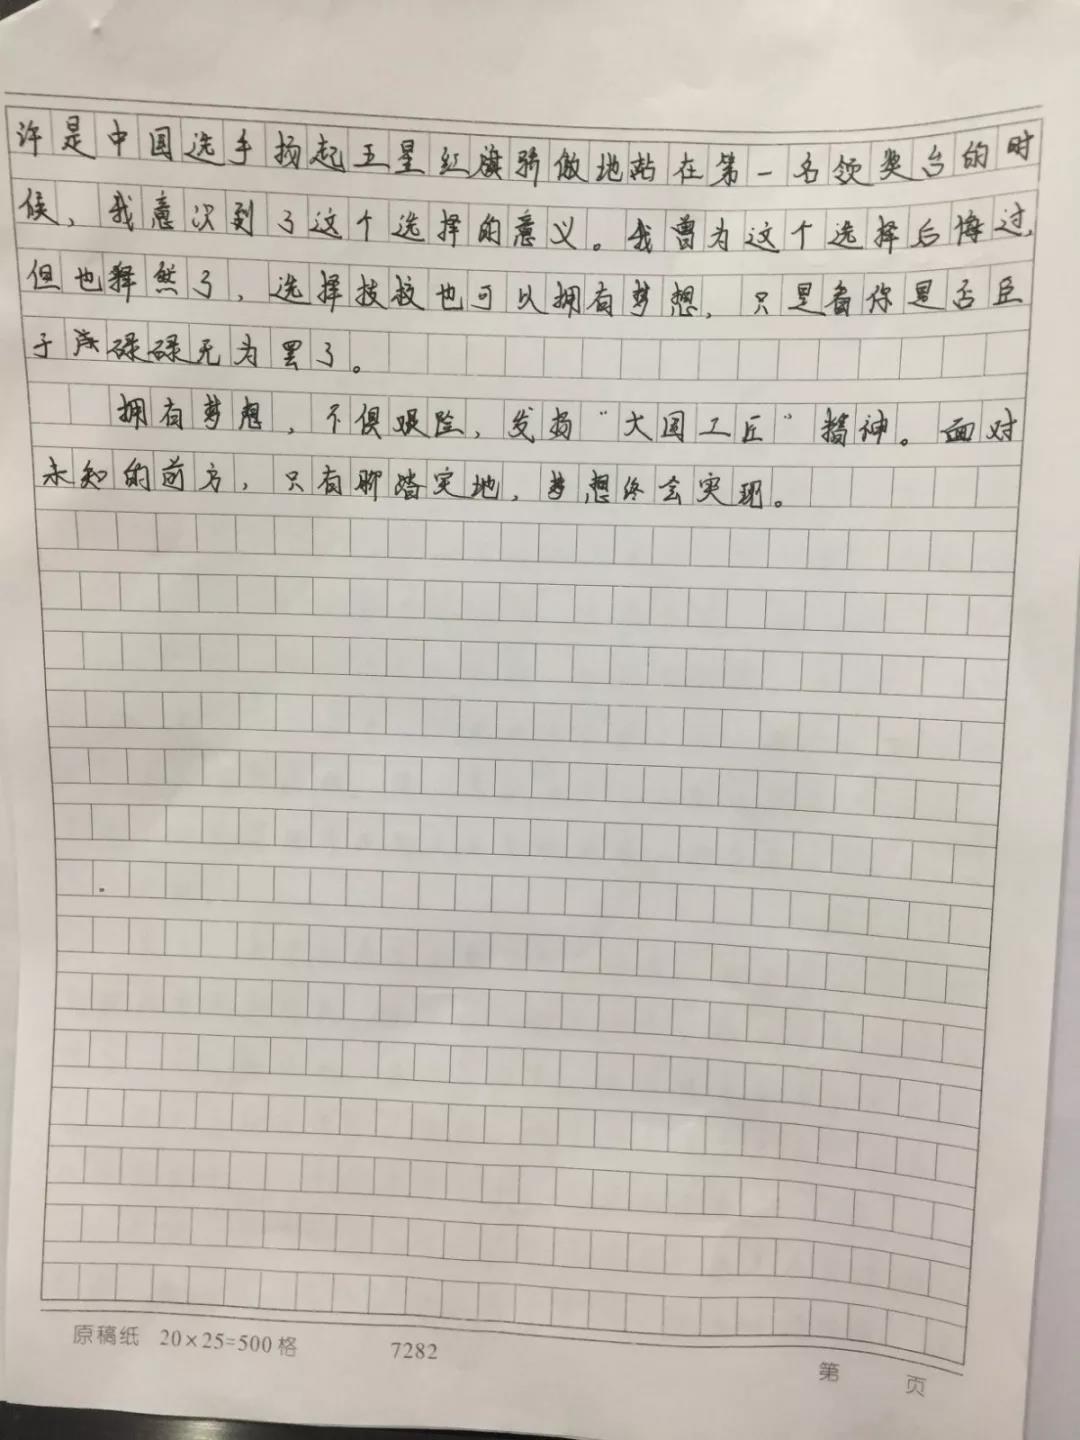 许是中国选手扬起五星红旗骄傲地站在第一名领奖台的时
候，我意识到了这个选择的意义。我曾为这个选择后悔过，
但也释然了，选择技校也可以拥有梦想，只是看你是否臣
于庸碌碌无为罢了。
拥有梦想，不惧艰险，发扬“大国工匠”精神。面对
未知的前方，只有脚踏实地，梦想终会实现。
原稿纸 20×25=500格 7282 第 页